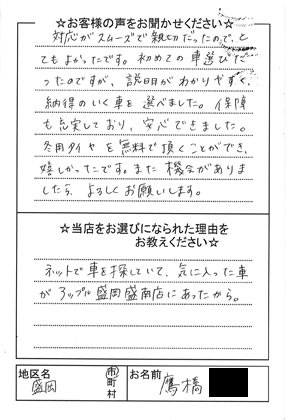 ☆お客様の声をお聞かせください☆
対応がスムーズで親切だったので、と
てもよかったです。初めての車選びだ
ったのですが、説明がわかりやすく、
納得のいく車を選べました。保障
も充実しており、安心できました。
冬用タイヤを無料で頂くことができ、
嬉しかったです。また機会がありま
したら、よろしくお願いします。
☆当店をお選びになられた理由を
お教えください☆
ネットで車を探していて、気に入った車
がアップル盛岡盛南店にあったから。
地区名 盛岡 市町村 お名前 鷹橋